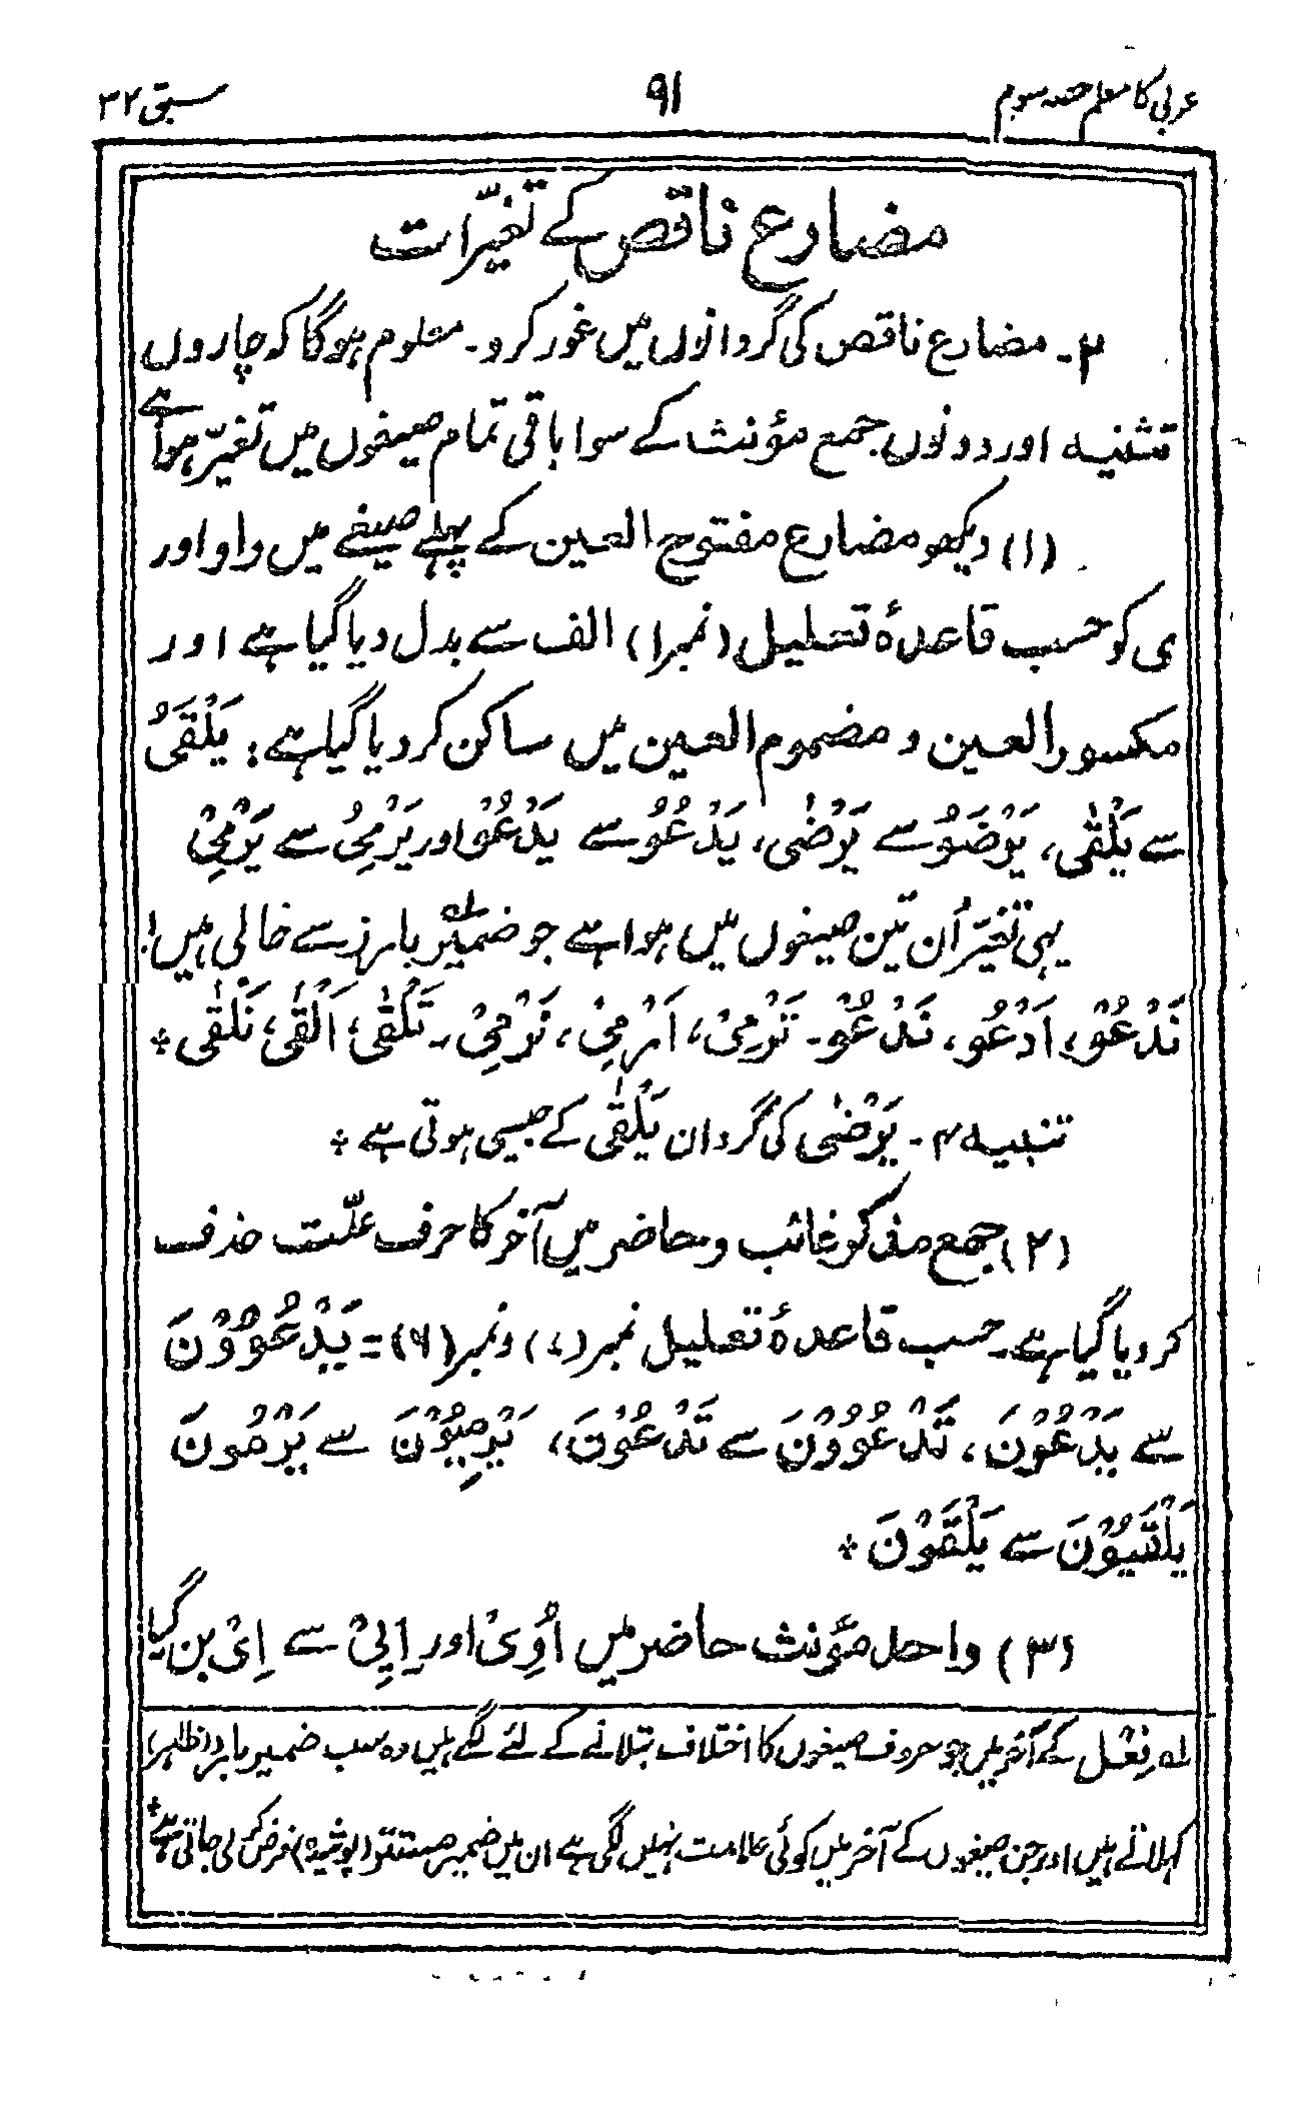 عربی کا معلم حصہ سوم
۹۱
سبق ۳۲
مضارع ناقص کے تغیّرات
۲۔ مضارع ناقص کی گردانوں میں غور کرو۔ معلوم ہوگا کہ چاروں
تثنیہ اور دونوں جمع مؤنث کے سوا باقی تمام صیغوں میں تغیّر ہوا ہے
(۱) دیکھو مضارع مفتوح العین کے پہلے صیغے میں واو اور
ی کو حسب قاعدۂ تعلیل (نمبر۱) الف سے بدل دیا گیا ہے اور
مکسور العین و مضموم العین میں ساکن کر دیا گیا ہے: یَلْقَیُ
سے یَلْقٰی، یَرْضَوُ سے یَرْضٰی، یَدْعُوُ سے یَدْعُوْ اور یَرْمِیُ سے یَرْمِیْ
یہی تغیّر اُن تین صیغوں میں ہوا ہے جو ضمیر۱ؔہ بارز سے خالی ہیں:
تَدْعُوْ، اَدْعُو، نَدْعُوْ۔ تَرْمِیْ، اَرْمِیْ، نَرْمِیْ۔ تَلْقٰی، اَلْقٰی، نَلْقٰی *
تنبیہ ۴۔ یَرْضٰی کی گردان یَلْقٰی کے جیسی ہوتی ہے *
(۲) جمع مذکر غائب و حاضر میں آخر کا حرف علّت حذف
کر دیا گیا ہے۔ حسب قاعدۂ تعلیل نمبر (۷) و نمبر (۶) = یَدْعُوُوْنَ
سے یَدْعُوْنَ، تَدْعُوُوْنَ سے تَدْعُوْنَ، یَرْمِیُوْنَ سے یَرْمُونَ
یَلْقَیُوْنَ سے یَلْقَوْنَ *
(۳) واحد مؤنث حاضر میں اُوِیْ اور اِیِیْ سے اِیْ بن گیا
۱ؔہ فِعْل کے آخر میں جو حروف صیغوں کا اختلاف بتلانے کے لئے لگے ہیں وہ سب ضمیر بارز (ظاہر)
کہلاتے ہیں اور جن صیغوں کے آخر میں کوئی علامت نہیں لگی ہے ان میں ضمیر مستتر (پوشیدہ) فرض کر لی جاتی ہے *